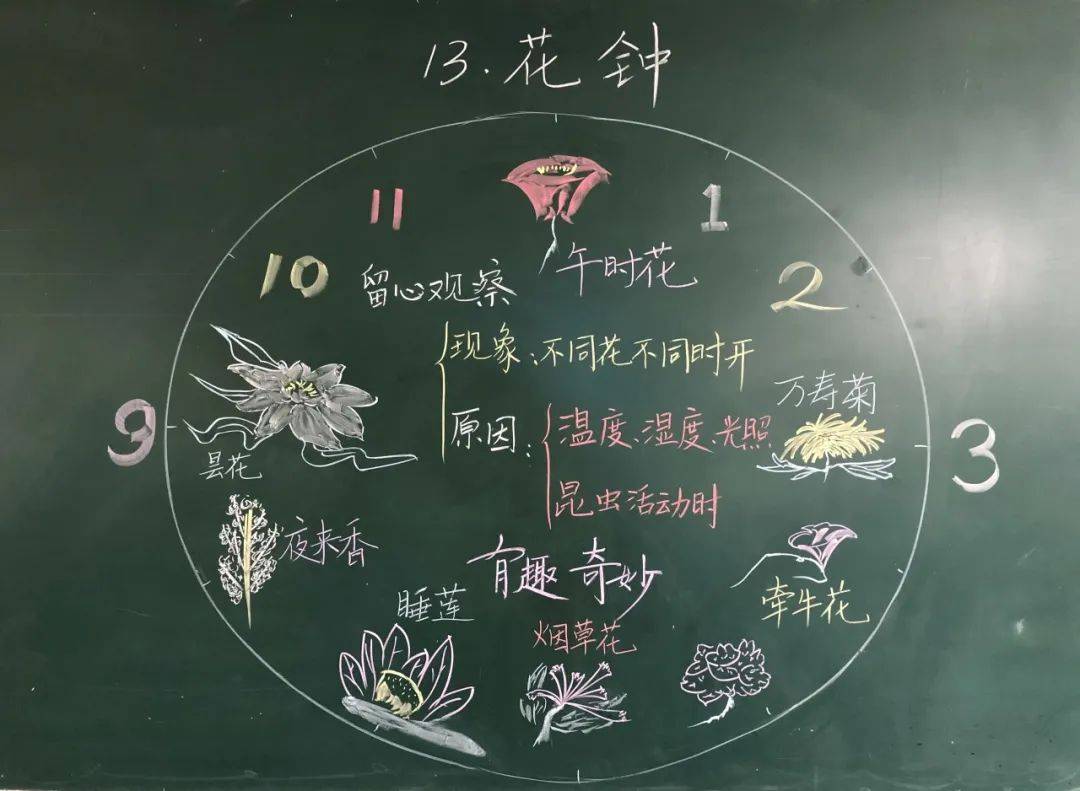 13.花钟
11
1
10
留心观察
午时花
2
现象:不同花不同时开
9
原因:
温度、湿度、光照
万寿菊
3
昙花
昆虫活动时
夜来香
有趣 奇妙
睡莲
烟草花
牵牛花